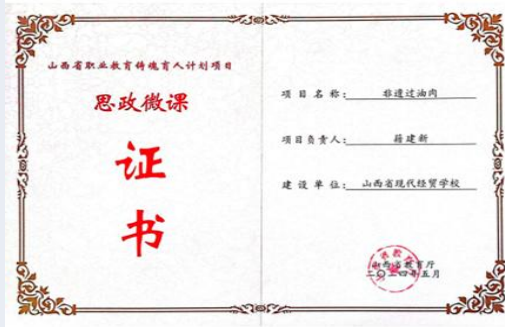 山西省职业教育铸魂育人计划项目
思政微课
证
书
项目名称:非遗过油肉
项目负责人:薛建新
建设单位:山西省现代经贸学校
山西省教育厅
二〇二四年五月